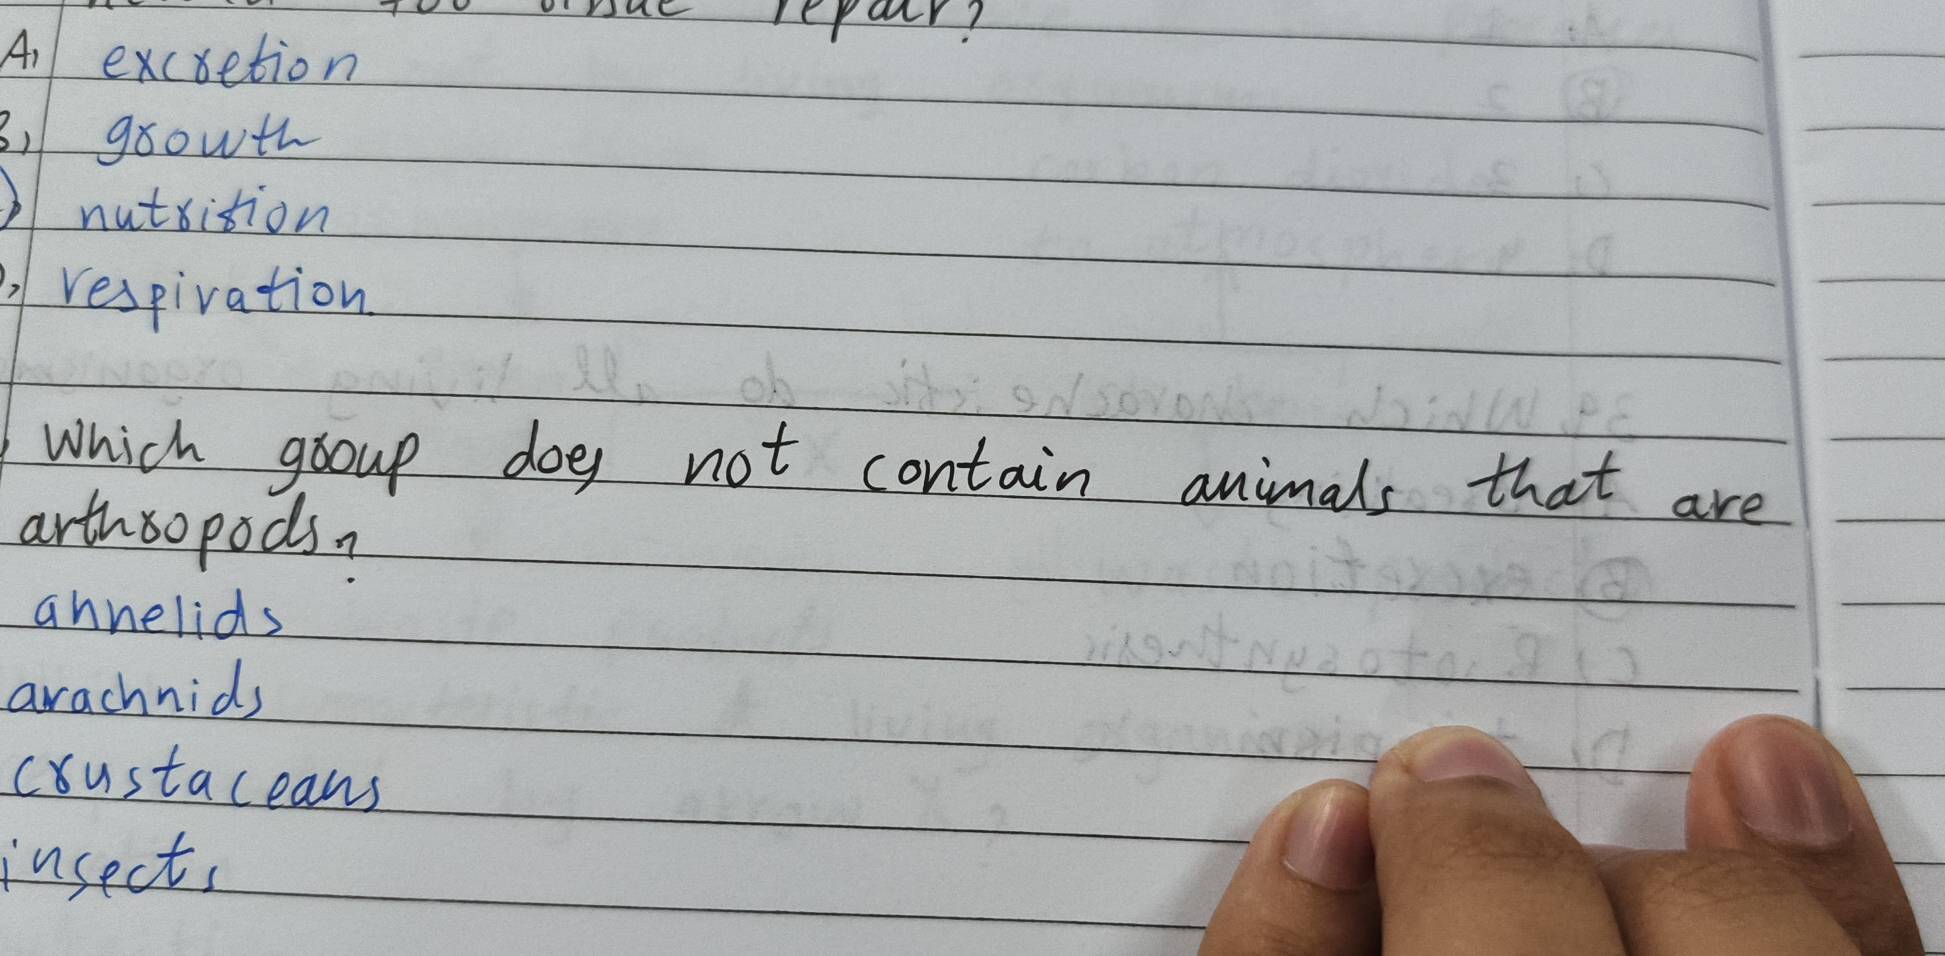 tissue repair?
A, excretion
B, growth
nutrition
D, respiration.
Which group does not contain animals that are
arthropods?
annelids
arachnids
crustaceans
insects